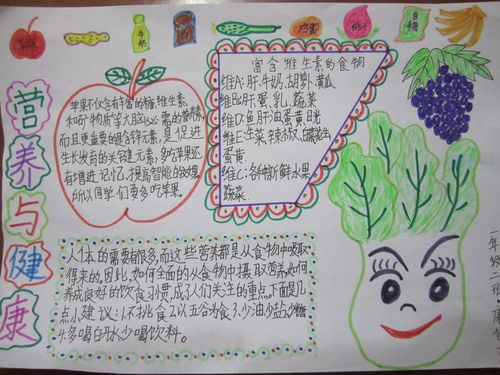 牛奶
鸡蛋
桃子
营养与健康
苹果不仅含有丰富的糖、维生素
和矿物质等大脑必需的营养素,
而且更重要的是含锌元素,是促进
生长发育的关键元素,多吃苹果还
有增进记忆、提高智能的效果
所以同学们要多吃苹果。
富含维生素的食物
维A:肝、牛奶、胡萝卜、黄瓜
维B:肝、蛋、乳、蔬菜
维D:鱼肝油、蛋黄、日光
维E:生菜、辣椒、
蛋黄.
维C:各种新鲜水果
蔬菜.
人体的需要有很多,而这些营养都是从食物中吸取
得来的。因此,如何全面的从食物中摄取营养,如何
养成良好的饮食习惯,成了人们关注的重点。下面是几
点小建议:1.不挑食 2.以五谷为食 3.少油少盐少糖
4.多喝白开水少喝饮料。
一年级